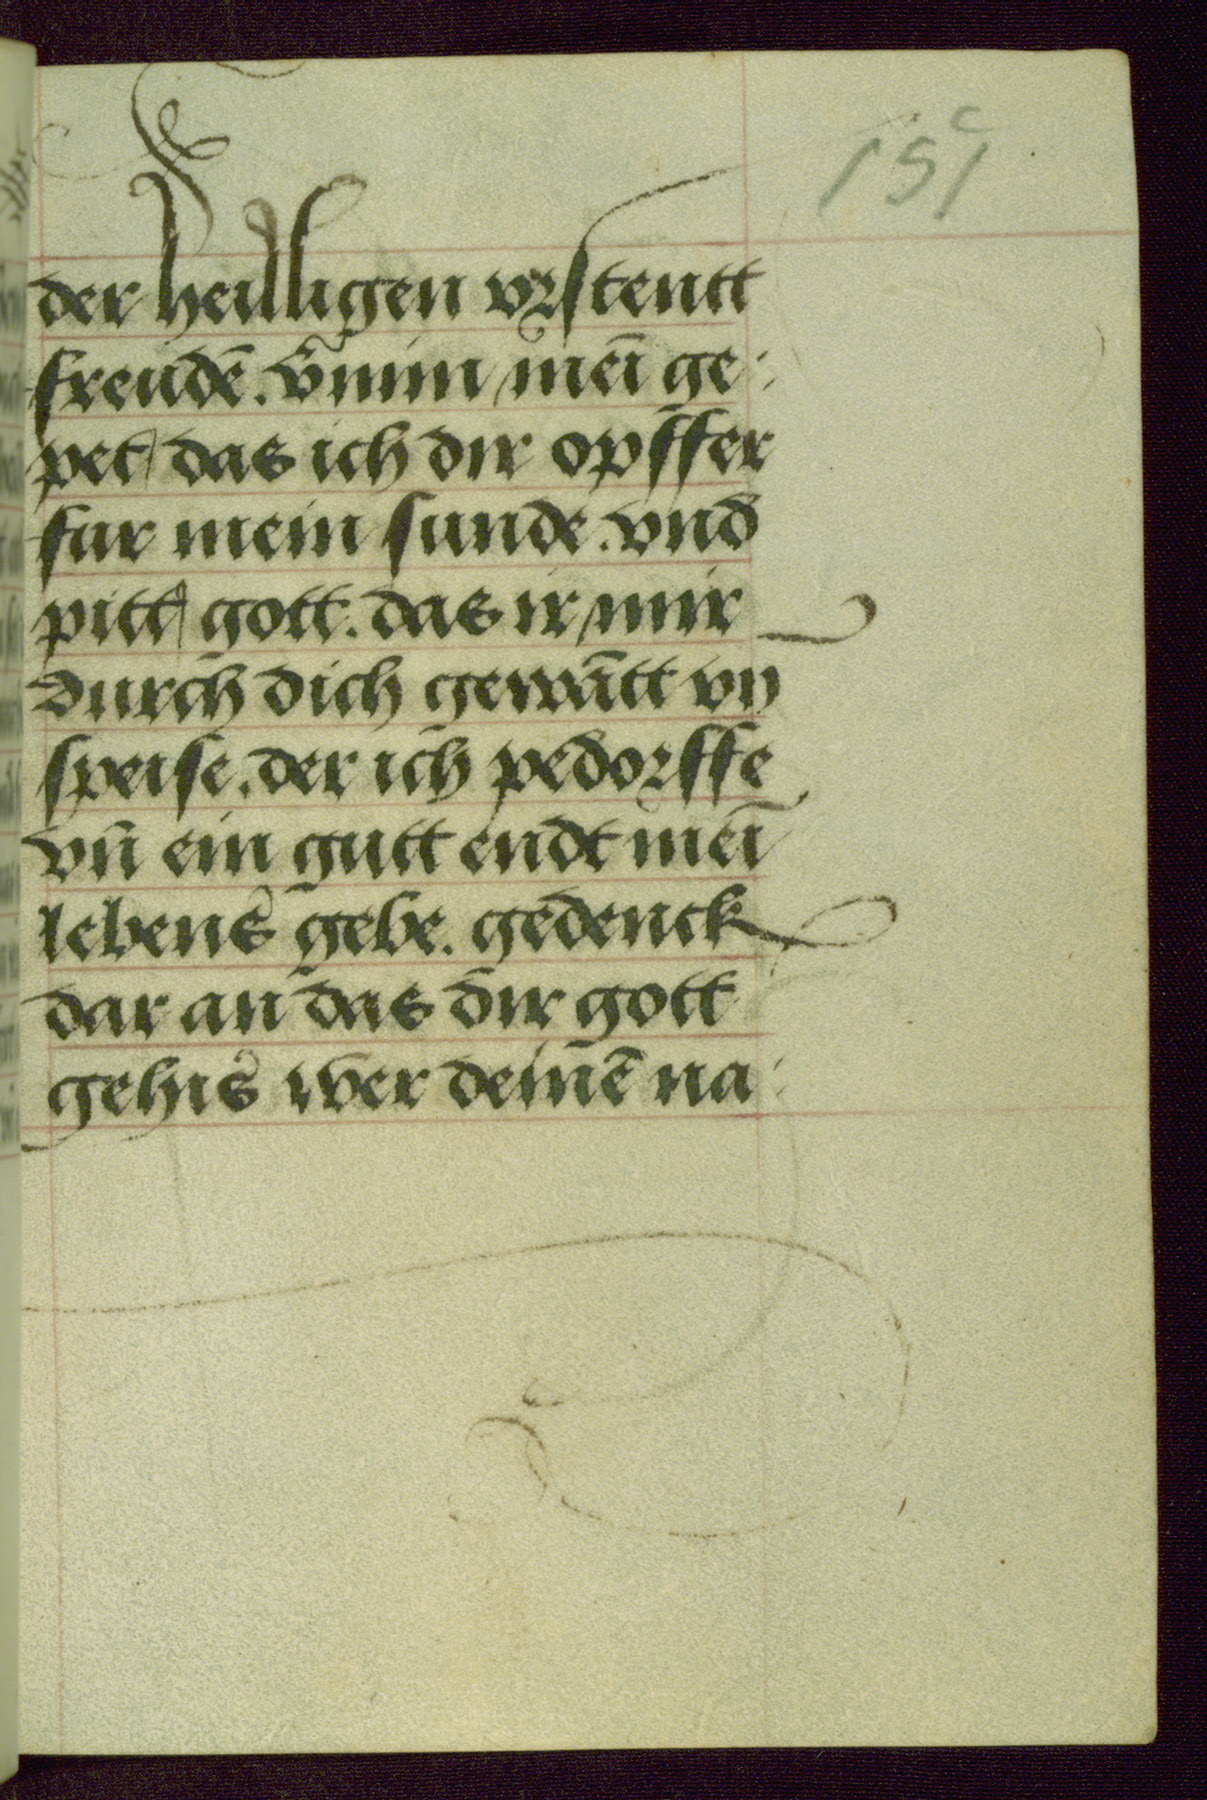 151
der heilligen vrstentt
freudē. v̄nim mei̅ ge:
pet das ich dir opffer
fur mein sunde. vnd
pitt gott. das ir mir
durch dich gewātt vn
speise. der ich pedorffe
vn̄ ein gutt endt mei̅
lebens gebe. gedenck
dar an das dir gott
gehis wer deinē na: